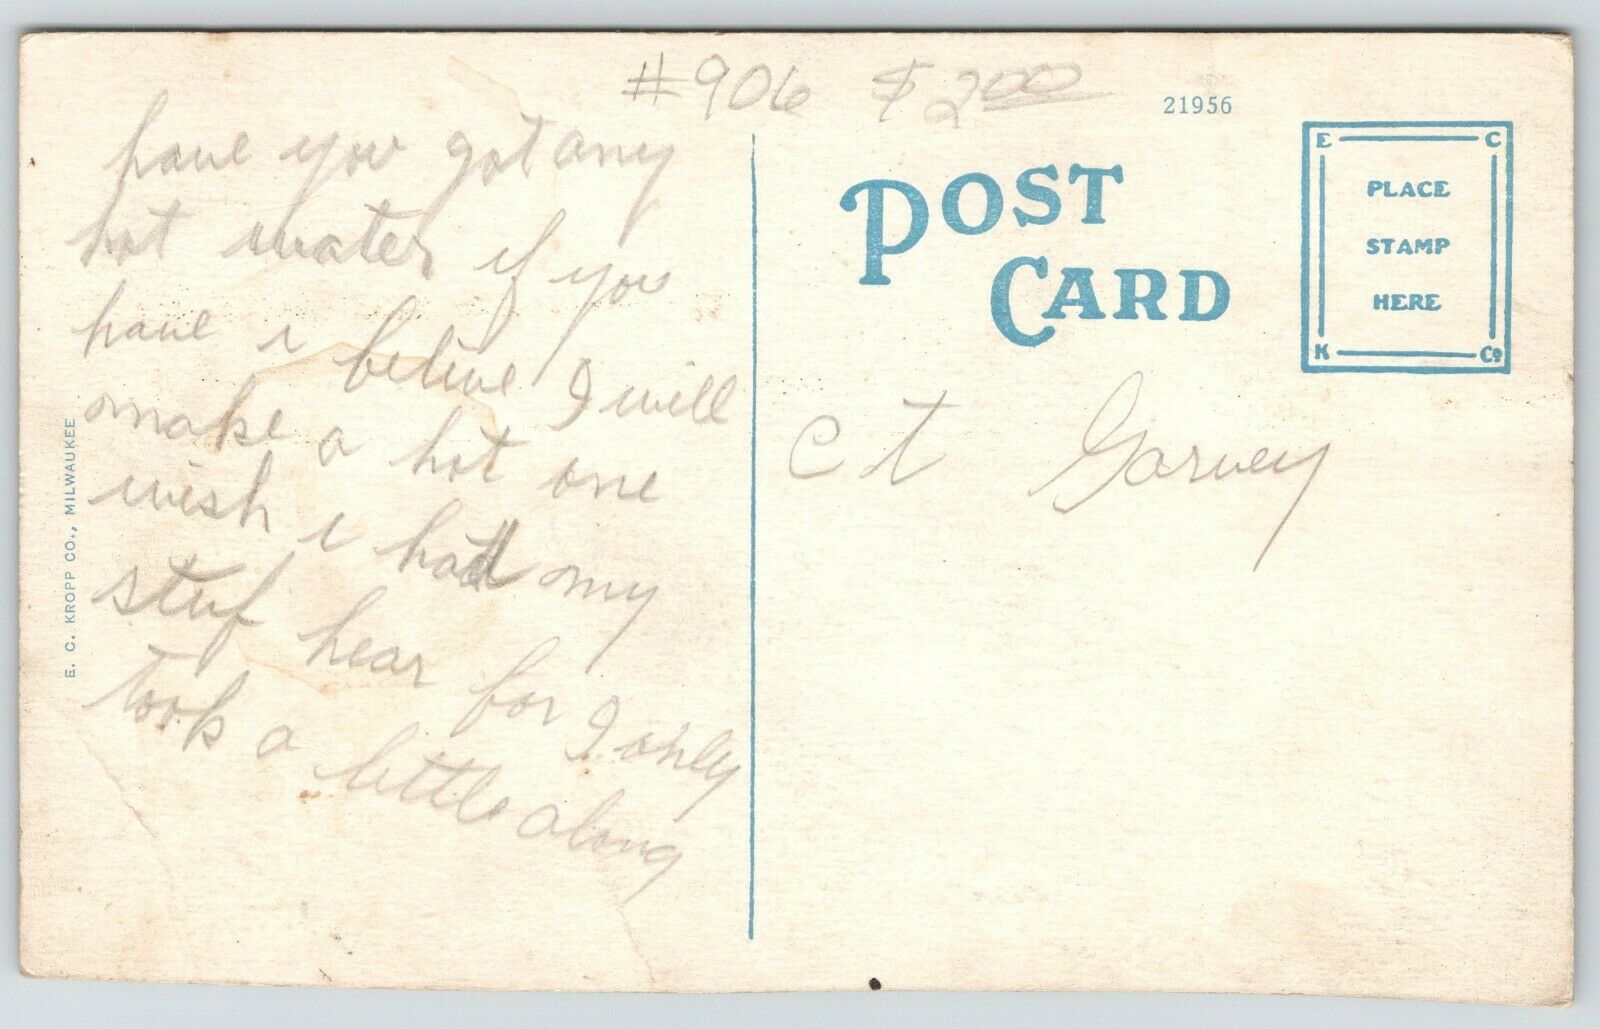 #906 $2.00
21956
have you got any
hot water if you
have i belive I will
make a hot one
wish i had my
stuf hear for I only
took a little along
E. C. KROPP CO., MILWAUKEE
POST
CARD
E C
PLACE
STAMP
HERE
K Co
C t Garvey